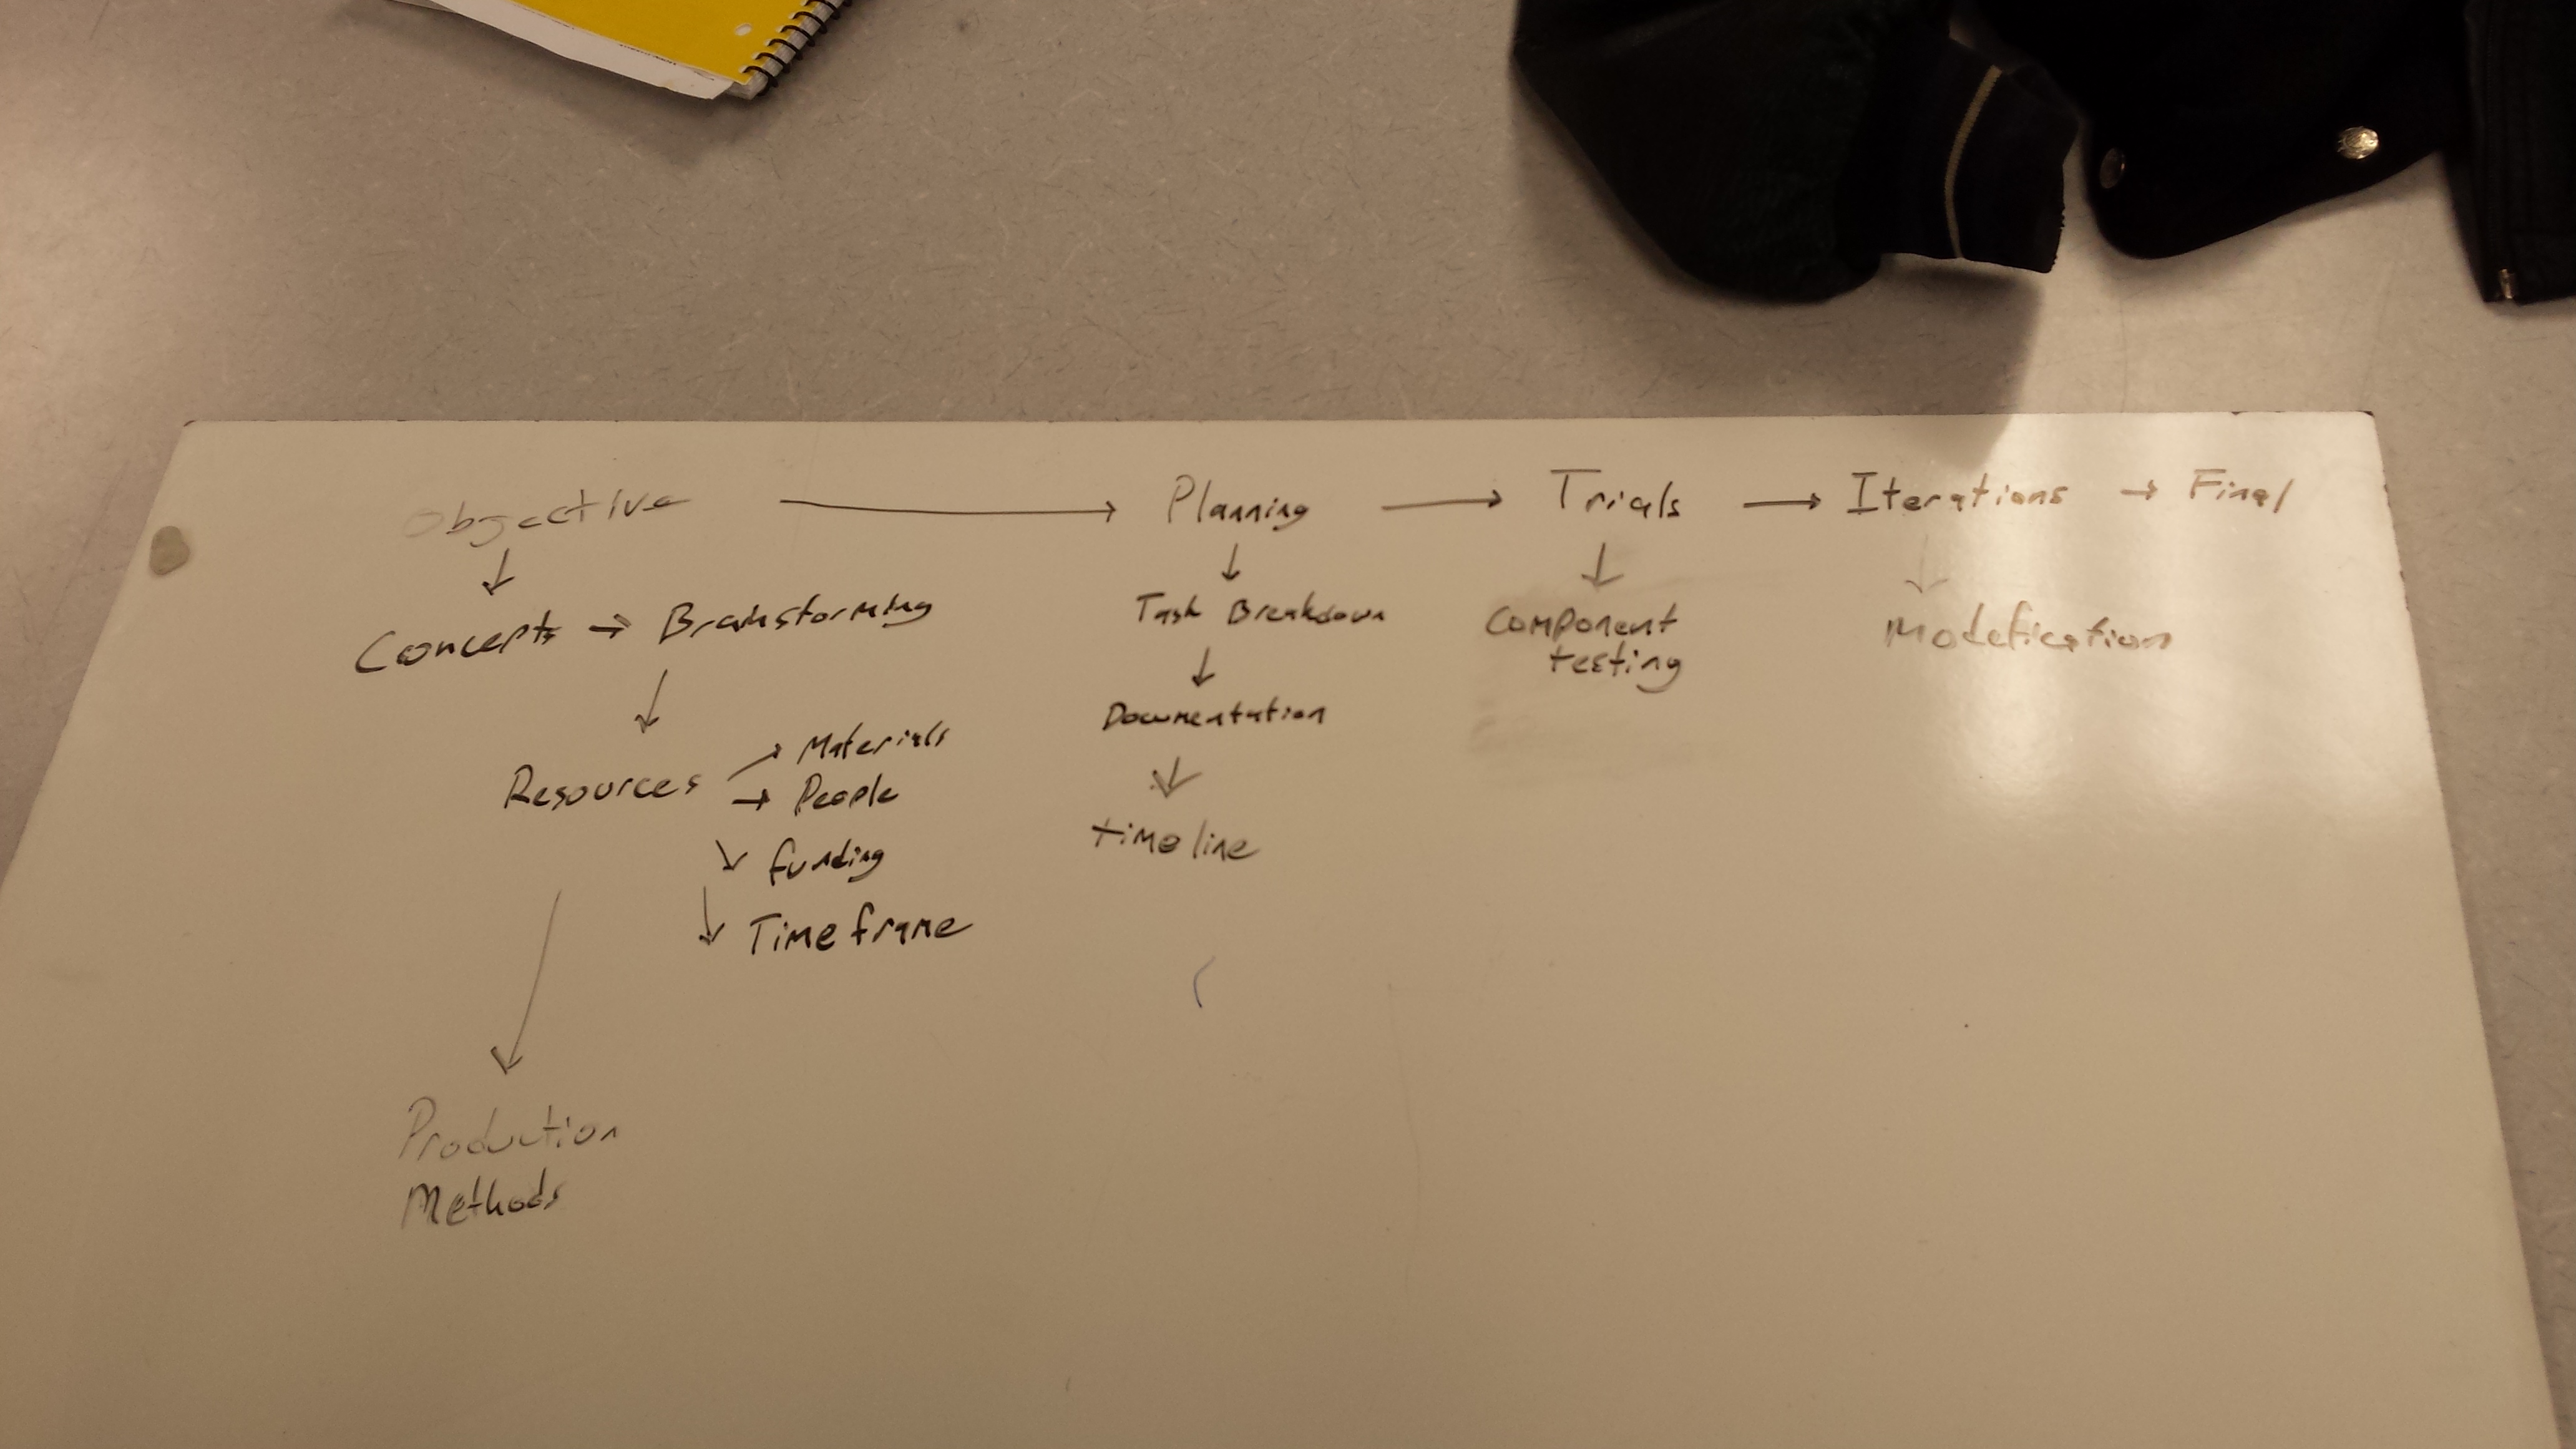 Objective → Planning → Trials → Iterations → Final
Concepts → Brainstorming
Task Breakdown
Component
testing
Modefication
Documentation
Resources
Materials
People
funding
Time frame
timeline
Production
Methods